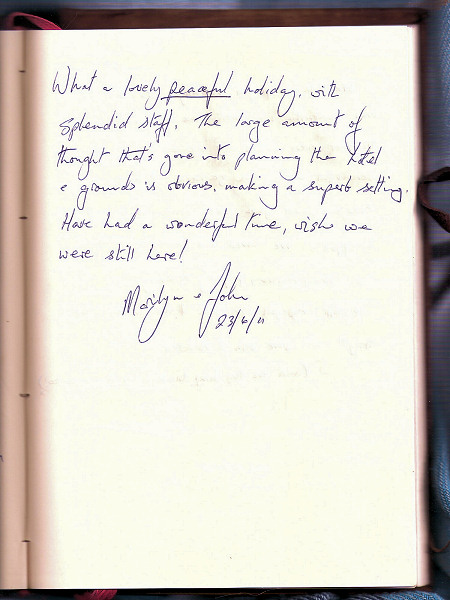 What a lovely peaceful holiday, with
splendid staff. The large amount of
thought that's gone into planning the hotel
& grounds is obvious, making a superb setting.
Have had a wonderful time, wish we
were still here!
Marilyn & John
23/6/11